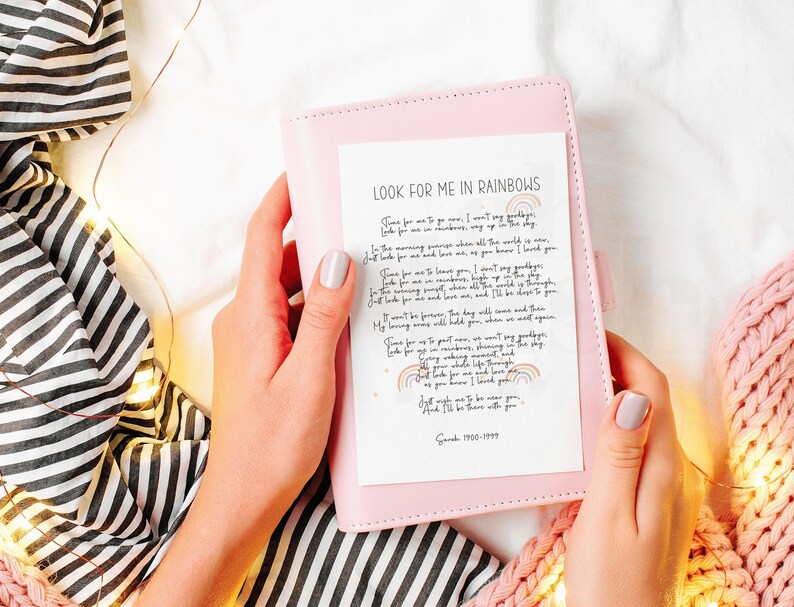 LOOK FOR ME IN RAINBOWS
Time for me to go now, I won't say goodbye;
Look for me in rainbows, way up in the sky.
In the morning sunrise when all the world is new,
Just look for me and love me, as you know I loved you.
Time for me to leave you, I won't say goodbye;
Look for me in rainbows, high up in the sky.
In the evening sunset, when all the world is through,
Just look for me and love me, and I'll be close to you.
It won't be forever, the day will come and then
My loving arms will hold you, when we meet again.
Time for us to part now, we won't say goodbye;
Look for me in rainbows, shining in the sky.
Every waking moment, and
all your whole life through
Just look for me and love me
as you know I loved you
Just wish me to be near you,
And I'll be there with you
Sarah 1900-1999